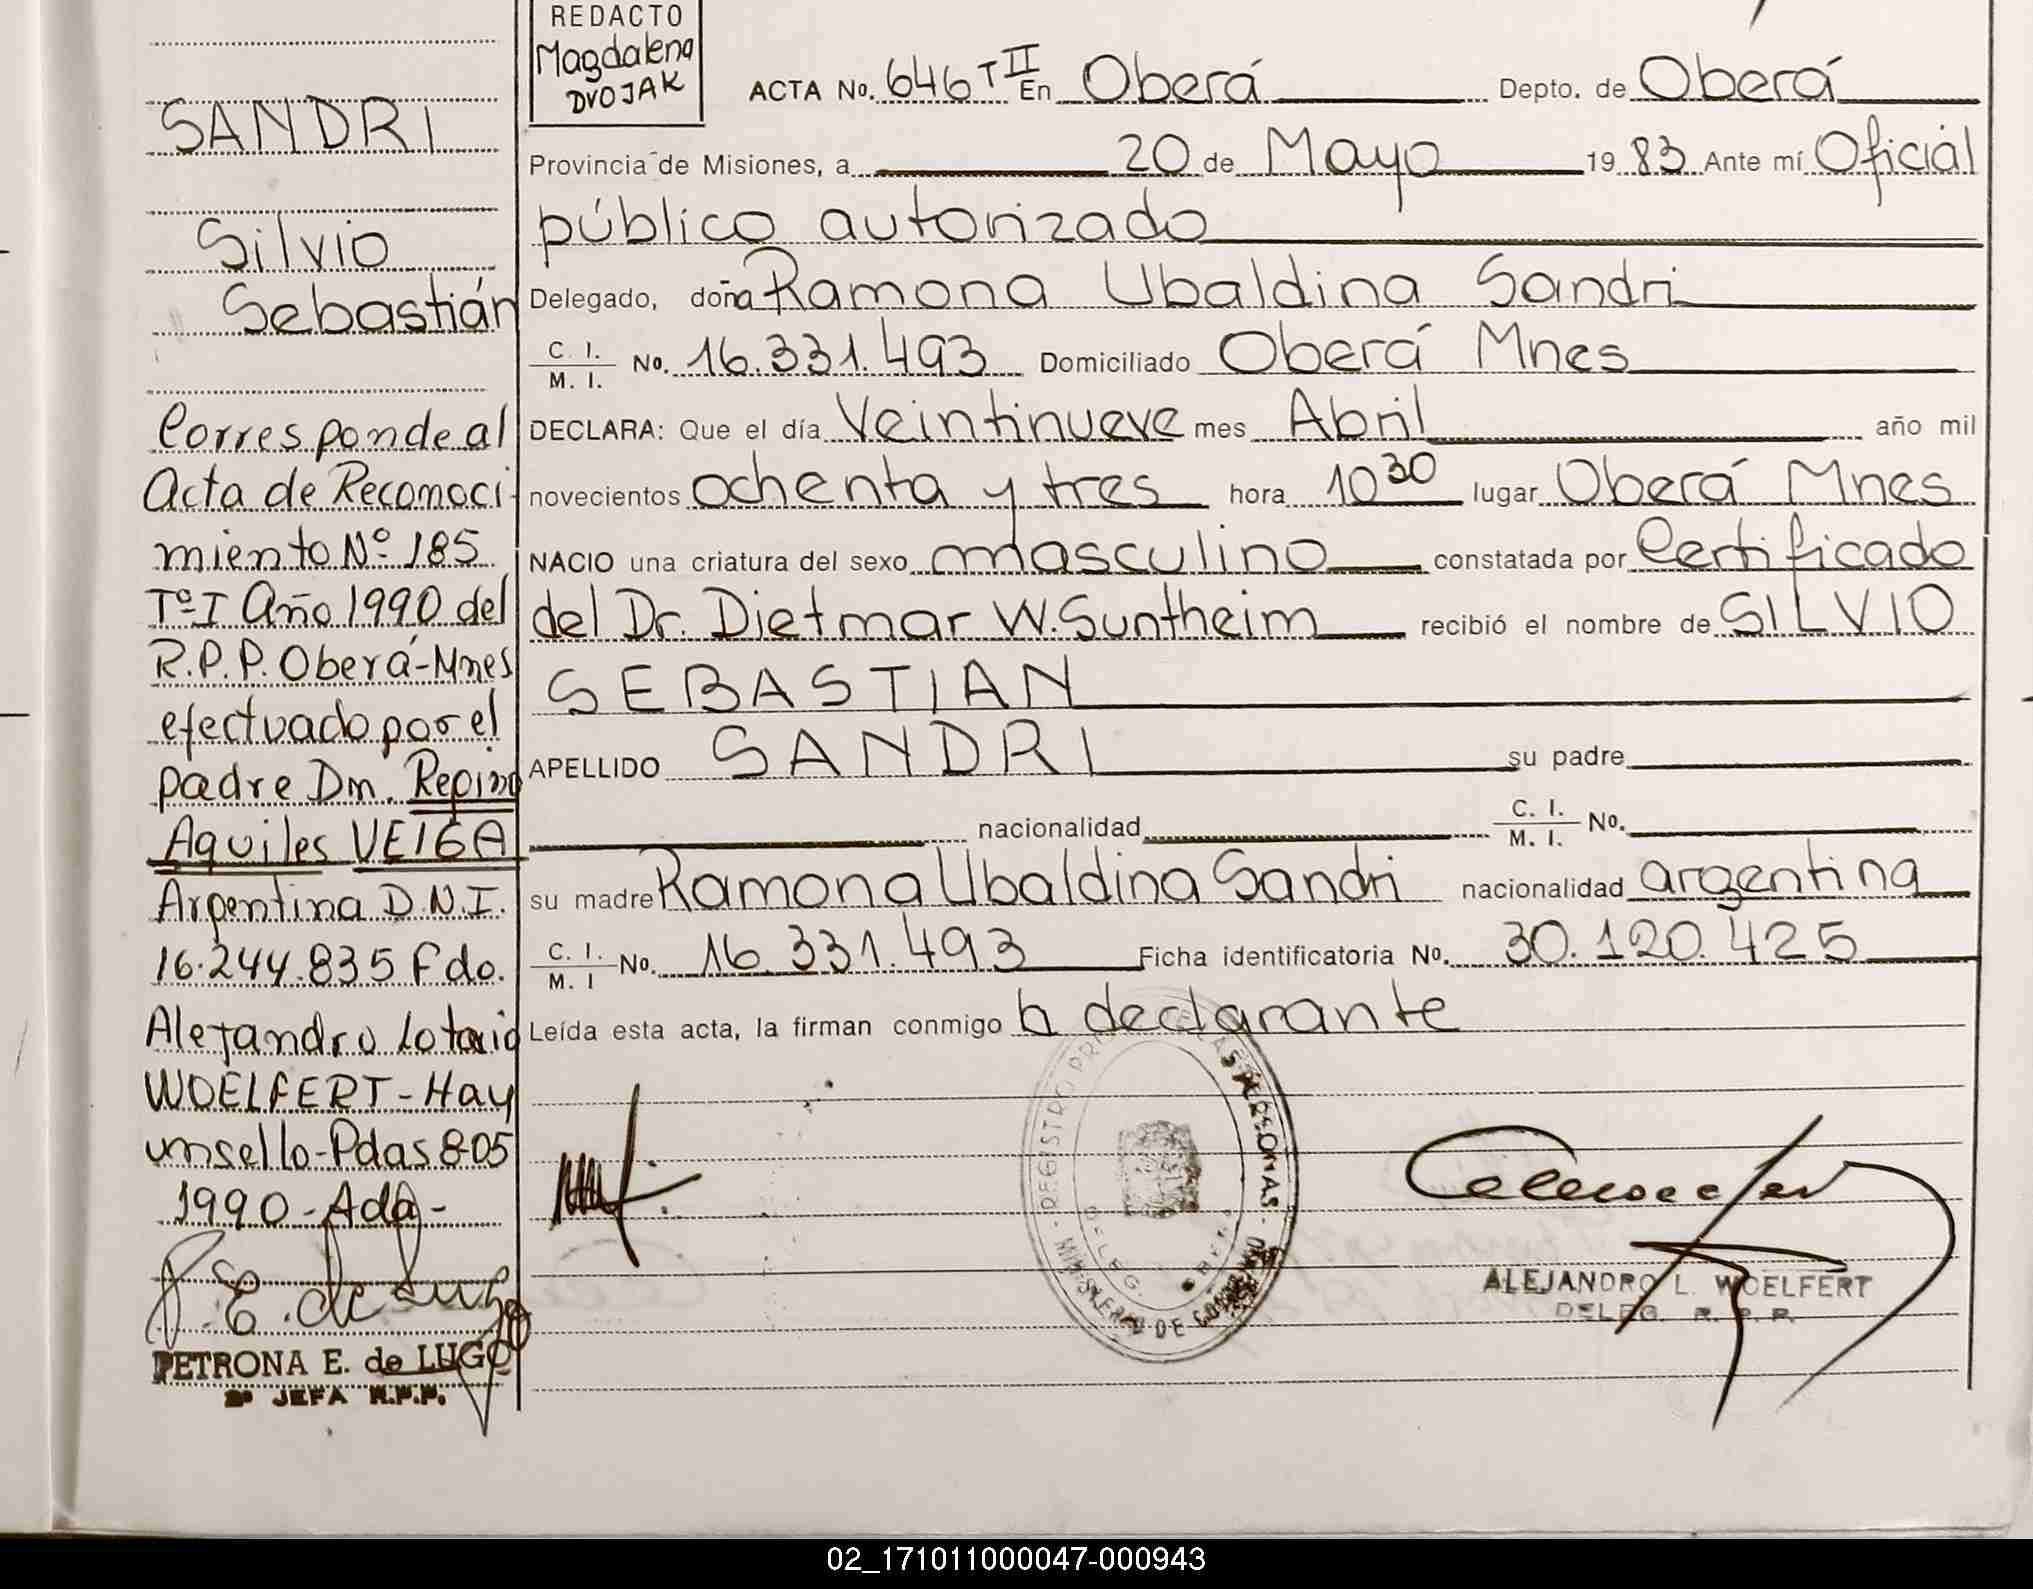 REDACTO
Magdalena
DVOJAK
SANDRI
Silvio
Sebastián
Corresponde al
Acta de Reconoci-
miento Nº 185
Tº I Año 1990 del
R.P.P. Oberá-Mnes
efectuado por el
padre Dn. Regino
Aquiles VEIGA
Argentina D.N.I.
16.244.835 Fdo.
Alejandro Lotario
WOELFERT - Hay
un sello - Pdas 805
1990 - Ada -
P. E. de Lugo
PETRONA E. de LUGO
2º JEFA R.P.P.
ACTA No. 646 T II En Oberá Depto. de Oberá
Provincia de Misiones, a 20 de Mayo 19 83 Ante mí Oficial
público autorizado
Delegado, doña Ramona Ubaldina Sandri
C. I. / M. I. No. 16.331.493 Domiciliado Oberá Mnes
DECLARA: Que el día Veintinueve mes Abril año mil
novecientos ochenta y tres hora 10 30 lugar Oberá Mnes
NACIO una criatura del sexo masculino constatada por Certificado
del Dr. Dietmar W. Suntheim recibió el nombre de SILVIO
SEBASTIAN
APELLIDO SANDRI su padre
nacionalidad C. I. / M. I. No.
su madre Ramona Ubaldina Sandri nacionalidad argentina
C. I. / M. I No. 16.331.493 Ficha identificatoria No. 30.120.425
Leída esta acta, la firman conmigo la declarante
REGISTRO DE LAS PERSONAS
DELEG. OBERA
MINISTERIO DE GOBIERNO
ALEJANDRO L. WOELFERT
DELEG. R. P. P.
02_171011000047-000943